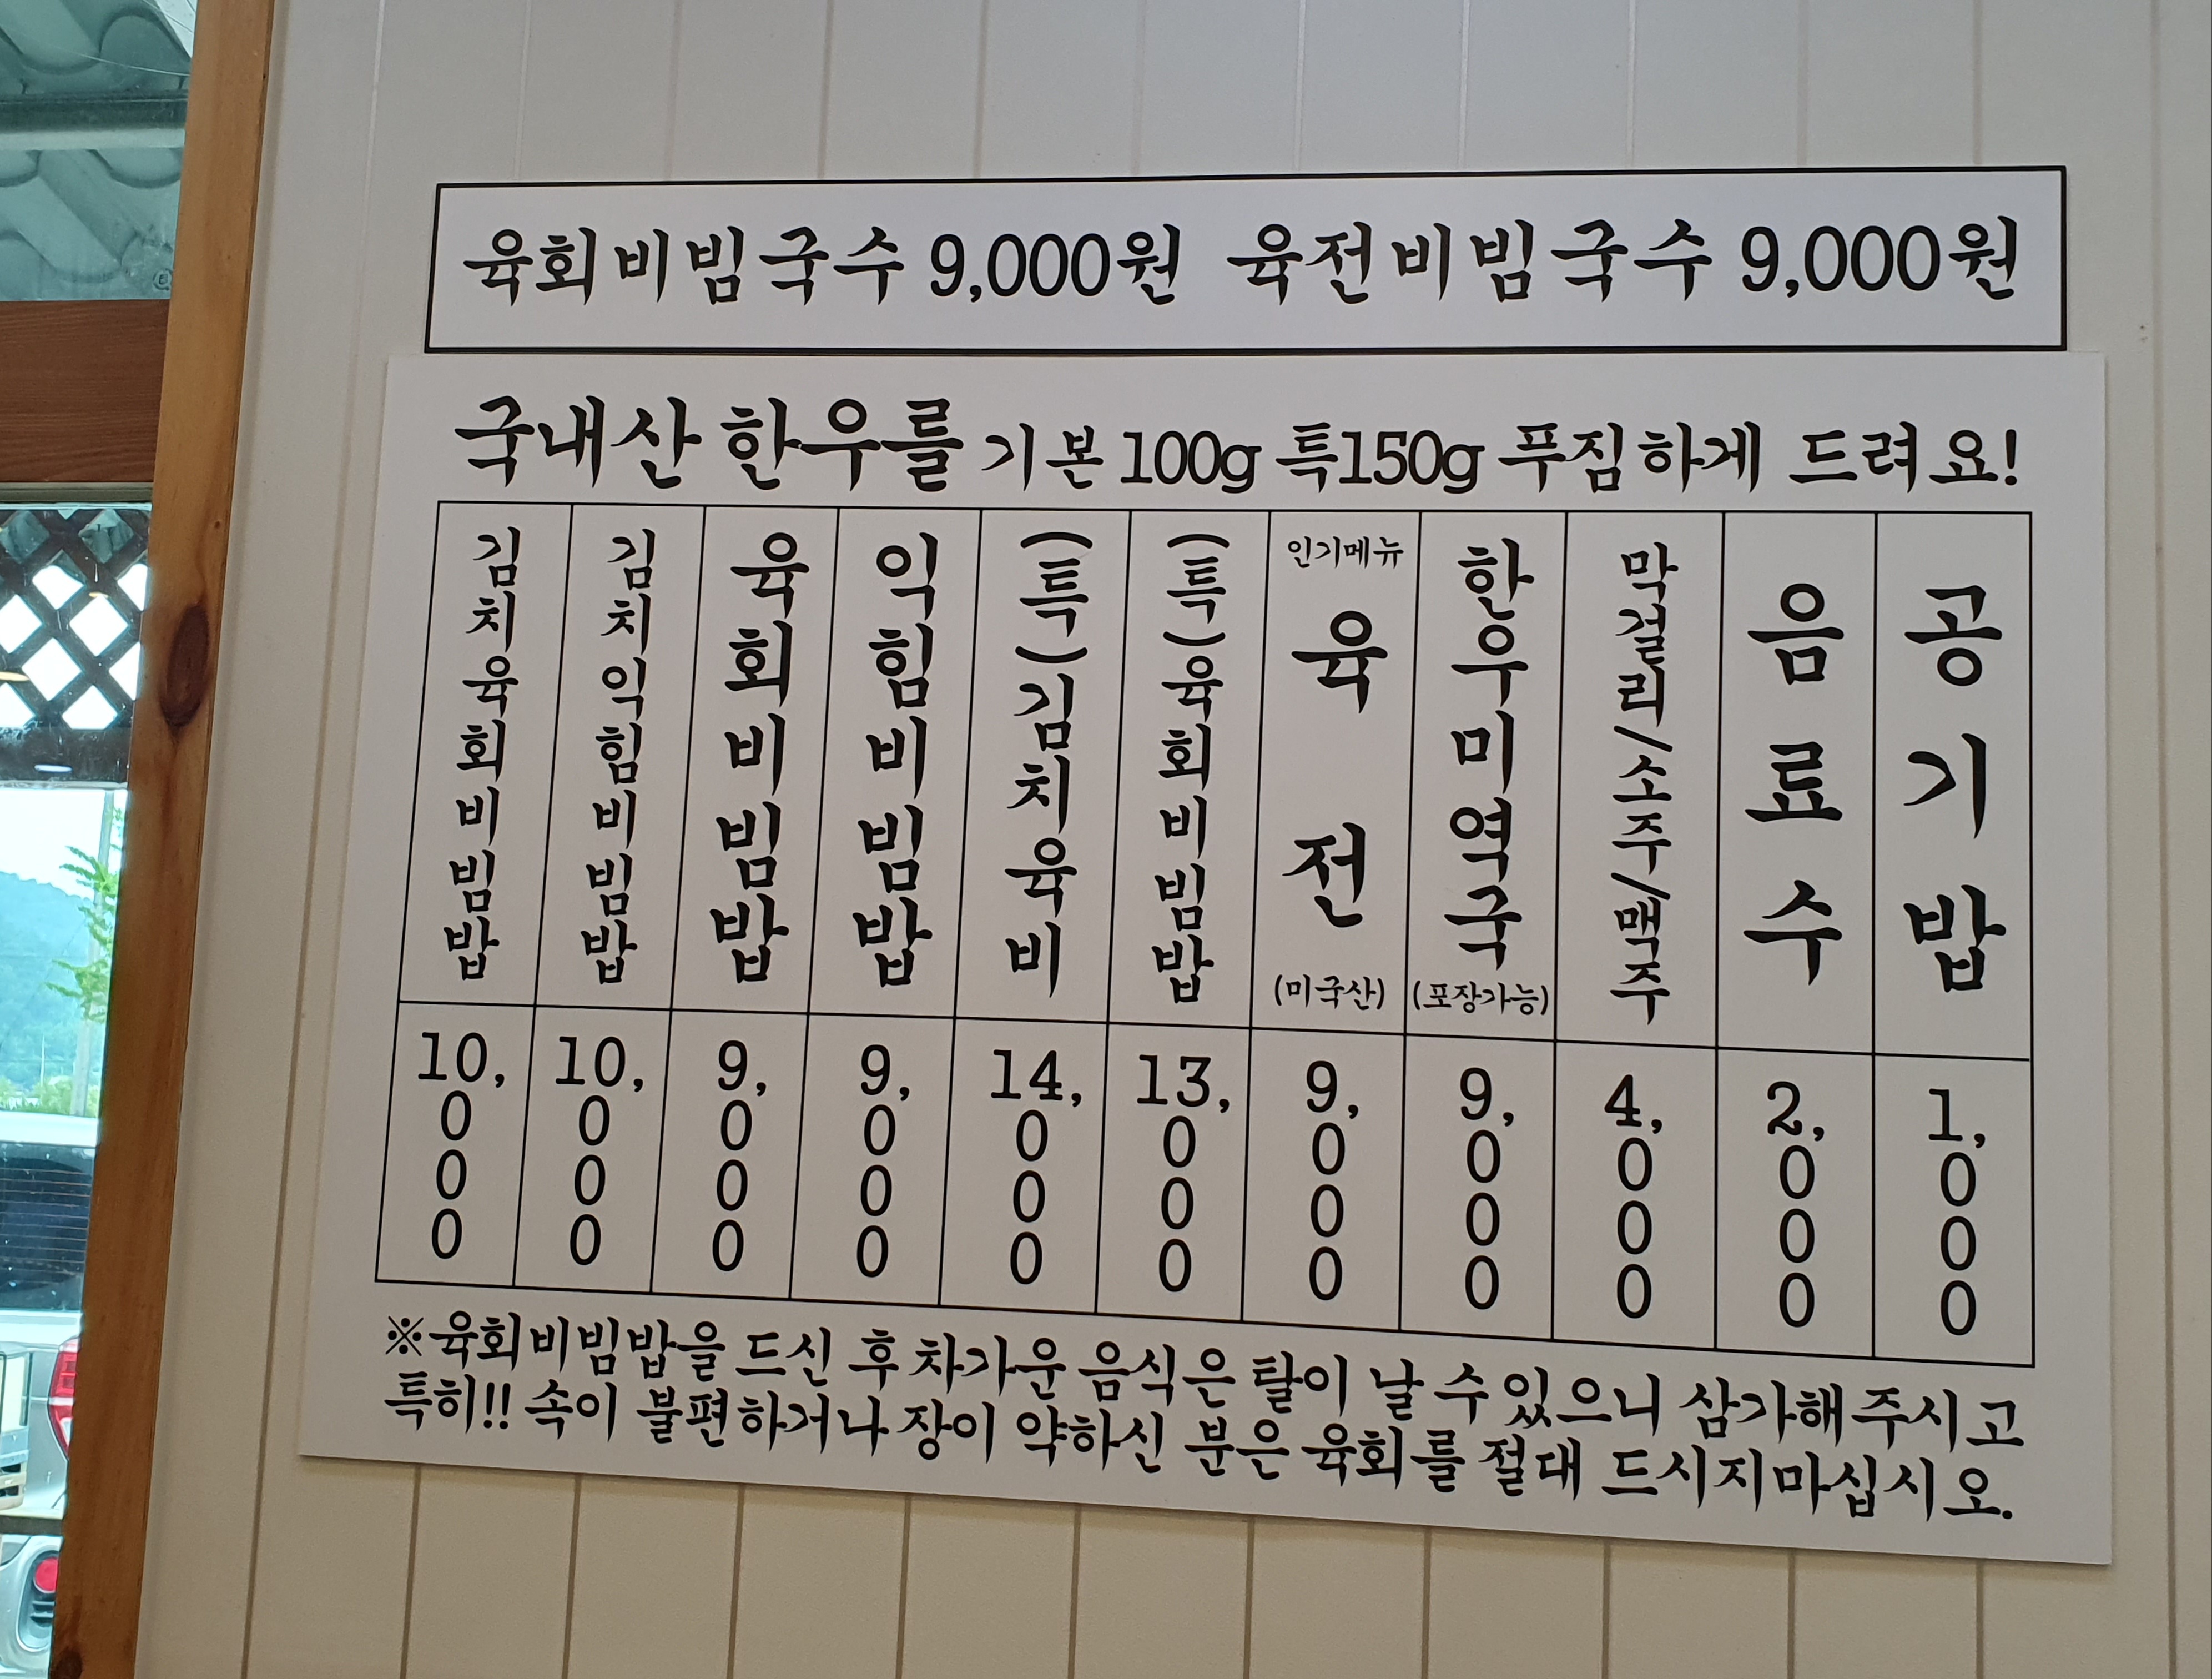 육회비빔국수 9,000원 육전비빔국수 9,000원
국내산 한우를 기본 100g 특150g 푸짐하게 드려요!
김치육회비빔밥 10,000
김치익힘비빔밥 10,000
육회비빔밥 9,000
익힘비빔밥 9,000
(특)김치육비 14,000
(특)육회비빔밥 13,000
인기메뉴 육전 (미국산) 9,000
한우미역국 (포장가능) 9,000
막걸리/소주/맥주 4,000
음료수 2,000
공기밥 1,000
※육회비빔밥을 드신 후 차가운 음식은 탈이 날 수 있으니 삼가해주시고
특히!! 속이 불편하거나 장이 약하신 분은 육회를 절대 드시지마십시오.